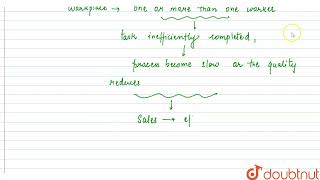 workplace → one or more than one worker
task inefficiently completed,
process become slow or the quality
reduces
Sales → e/
doubtnut